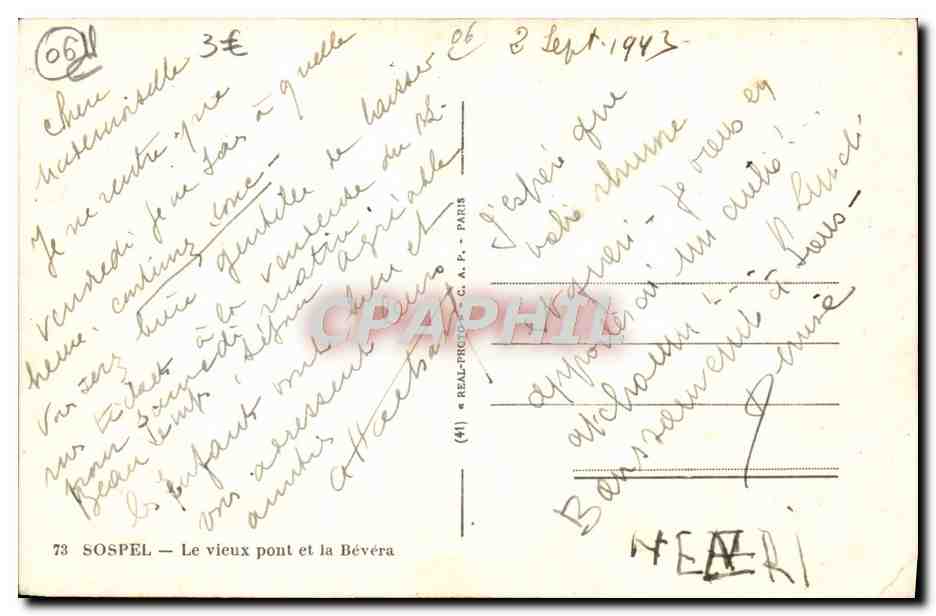 06
3€
06
2 Sept. 1943
Chère
Mademoiselle
Je ne rentre que
vendredi je ne sais à quelle
heure, continuez donc
Vous serez bien gentille de laisser
à la vendeuse du
pour samedi matin
Beau temps, séjour agréable
les enfants vont bien et
vous adressent leurs
amitiés
J'espère que
votre rhume
est guéri - je vous en
apporterai un autre!
atchoum!!
Bonssoirement à Lundi
Denise
(41) « REAL-PHOTO » C. A. P. - PARIS
CPAPHIL
73 SOSPEL — Le vieux pont et la Bévéra